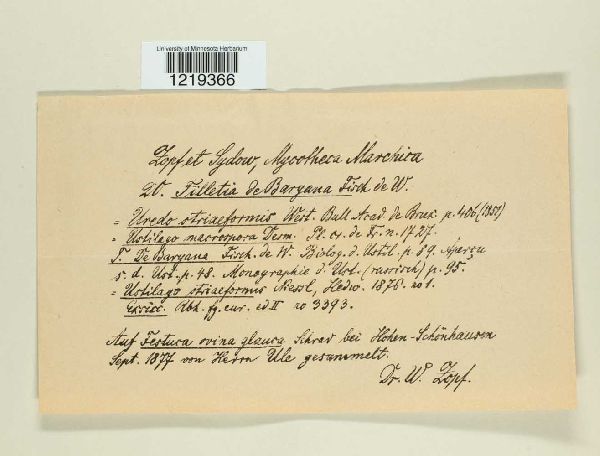 University of Minnesota Herbarium
1219366
Zopf et Sydow, Mycotheca Marchica
20. Tilletia de Baryana Fisch de W.
= Uredo striaeformis West. Bull. Acad. de Brux. p. 406 (1851)
= Ustilago macrospora Desm. Pl. cr. de Fr. n. 1727.
T. De Baryana Fisch. de W. Biolog. d. Ustil. p. 89. Aperçu
s. d. Ust. p. 48. Monographie d. Ust. (russisch) p. 95.
= Ustilago striaeformis Niessl, Hedw. 1876. no 1.
Exsicc. Rbh. fg. eur. ed II no 3393.
Auf Festuca ovina glauca Schrad bei Hohen-Schönhausen
Sept. 1877 von Herrn Ule gesammelt.
Dr. W. Zopf.